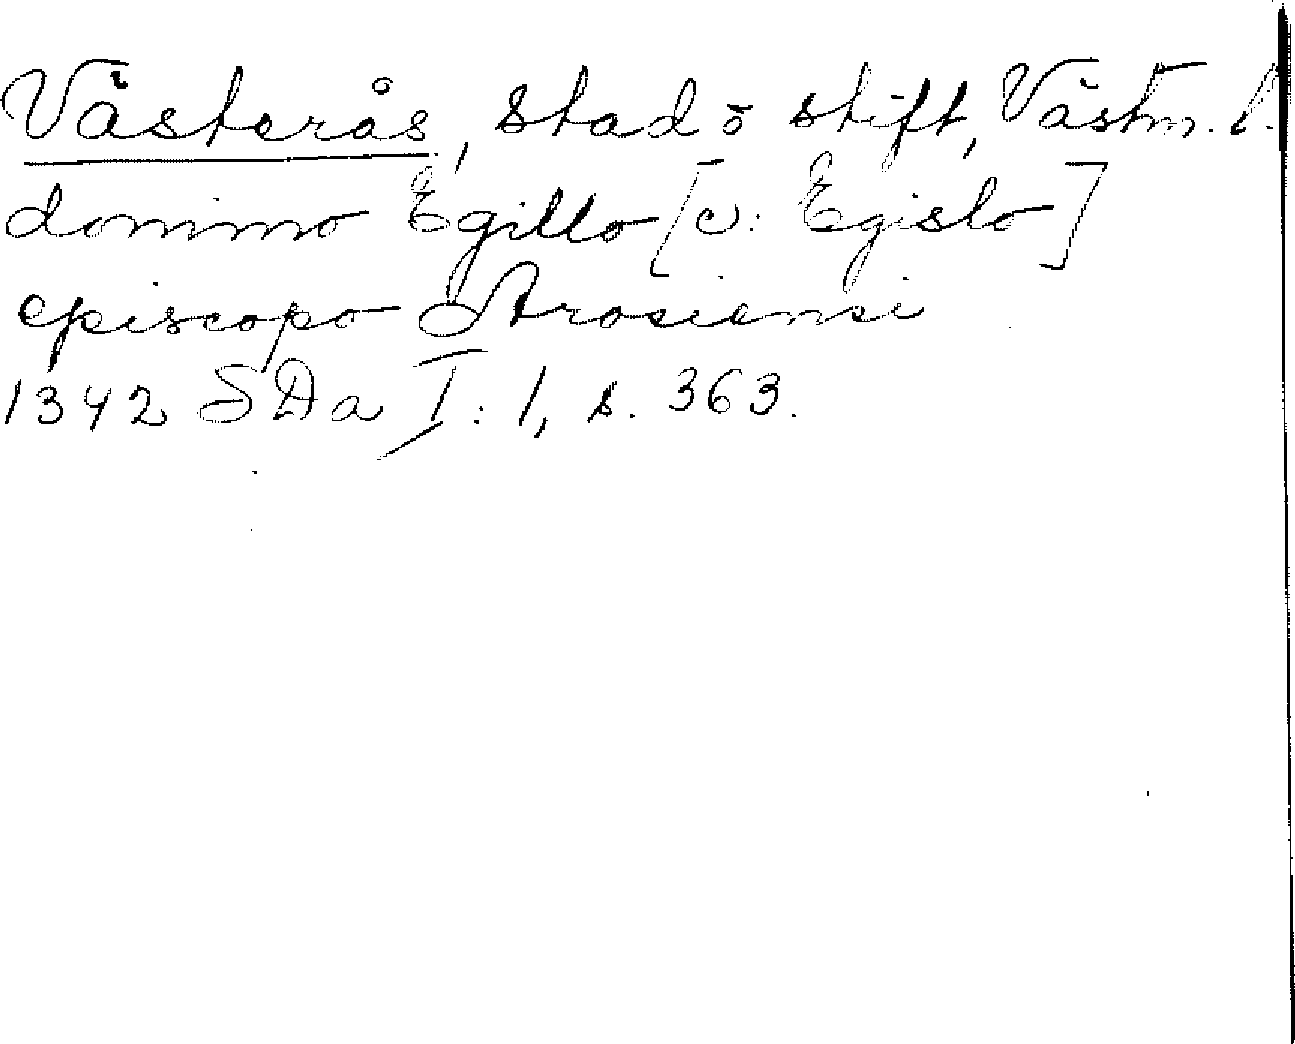 Västerås, stad o stift, Västm. l.
domino Egillo [c: Egislo]
episcopo Arosiensi
1342 SDa I: 1, s. 363.